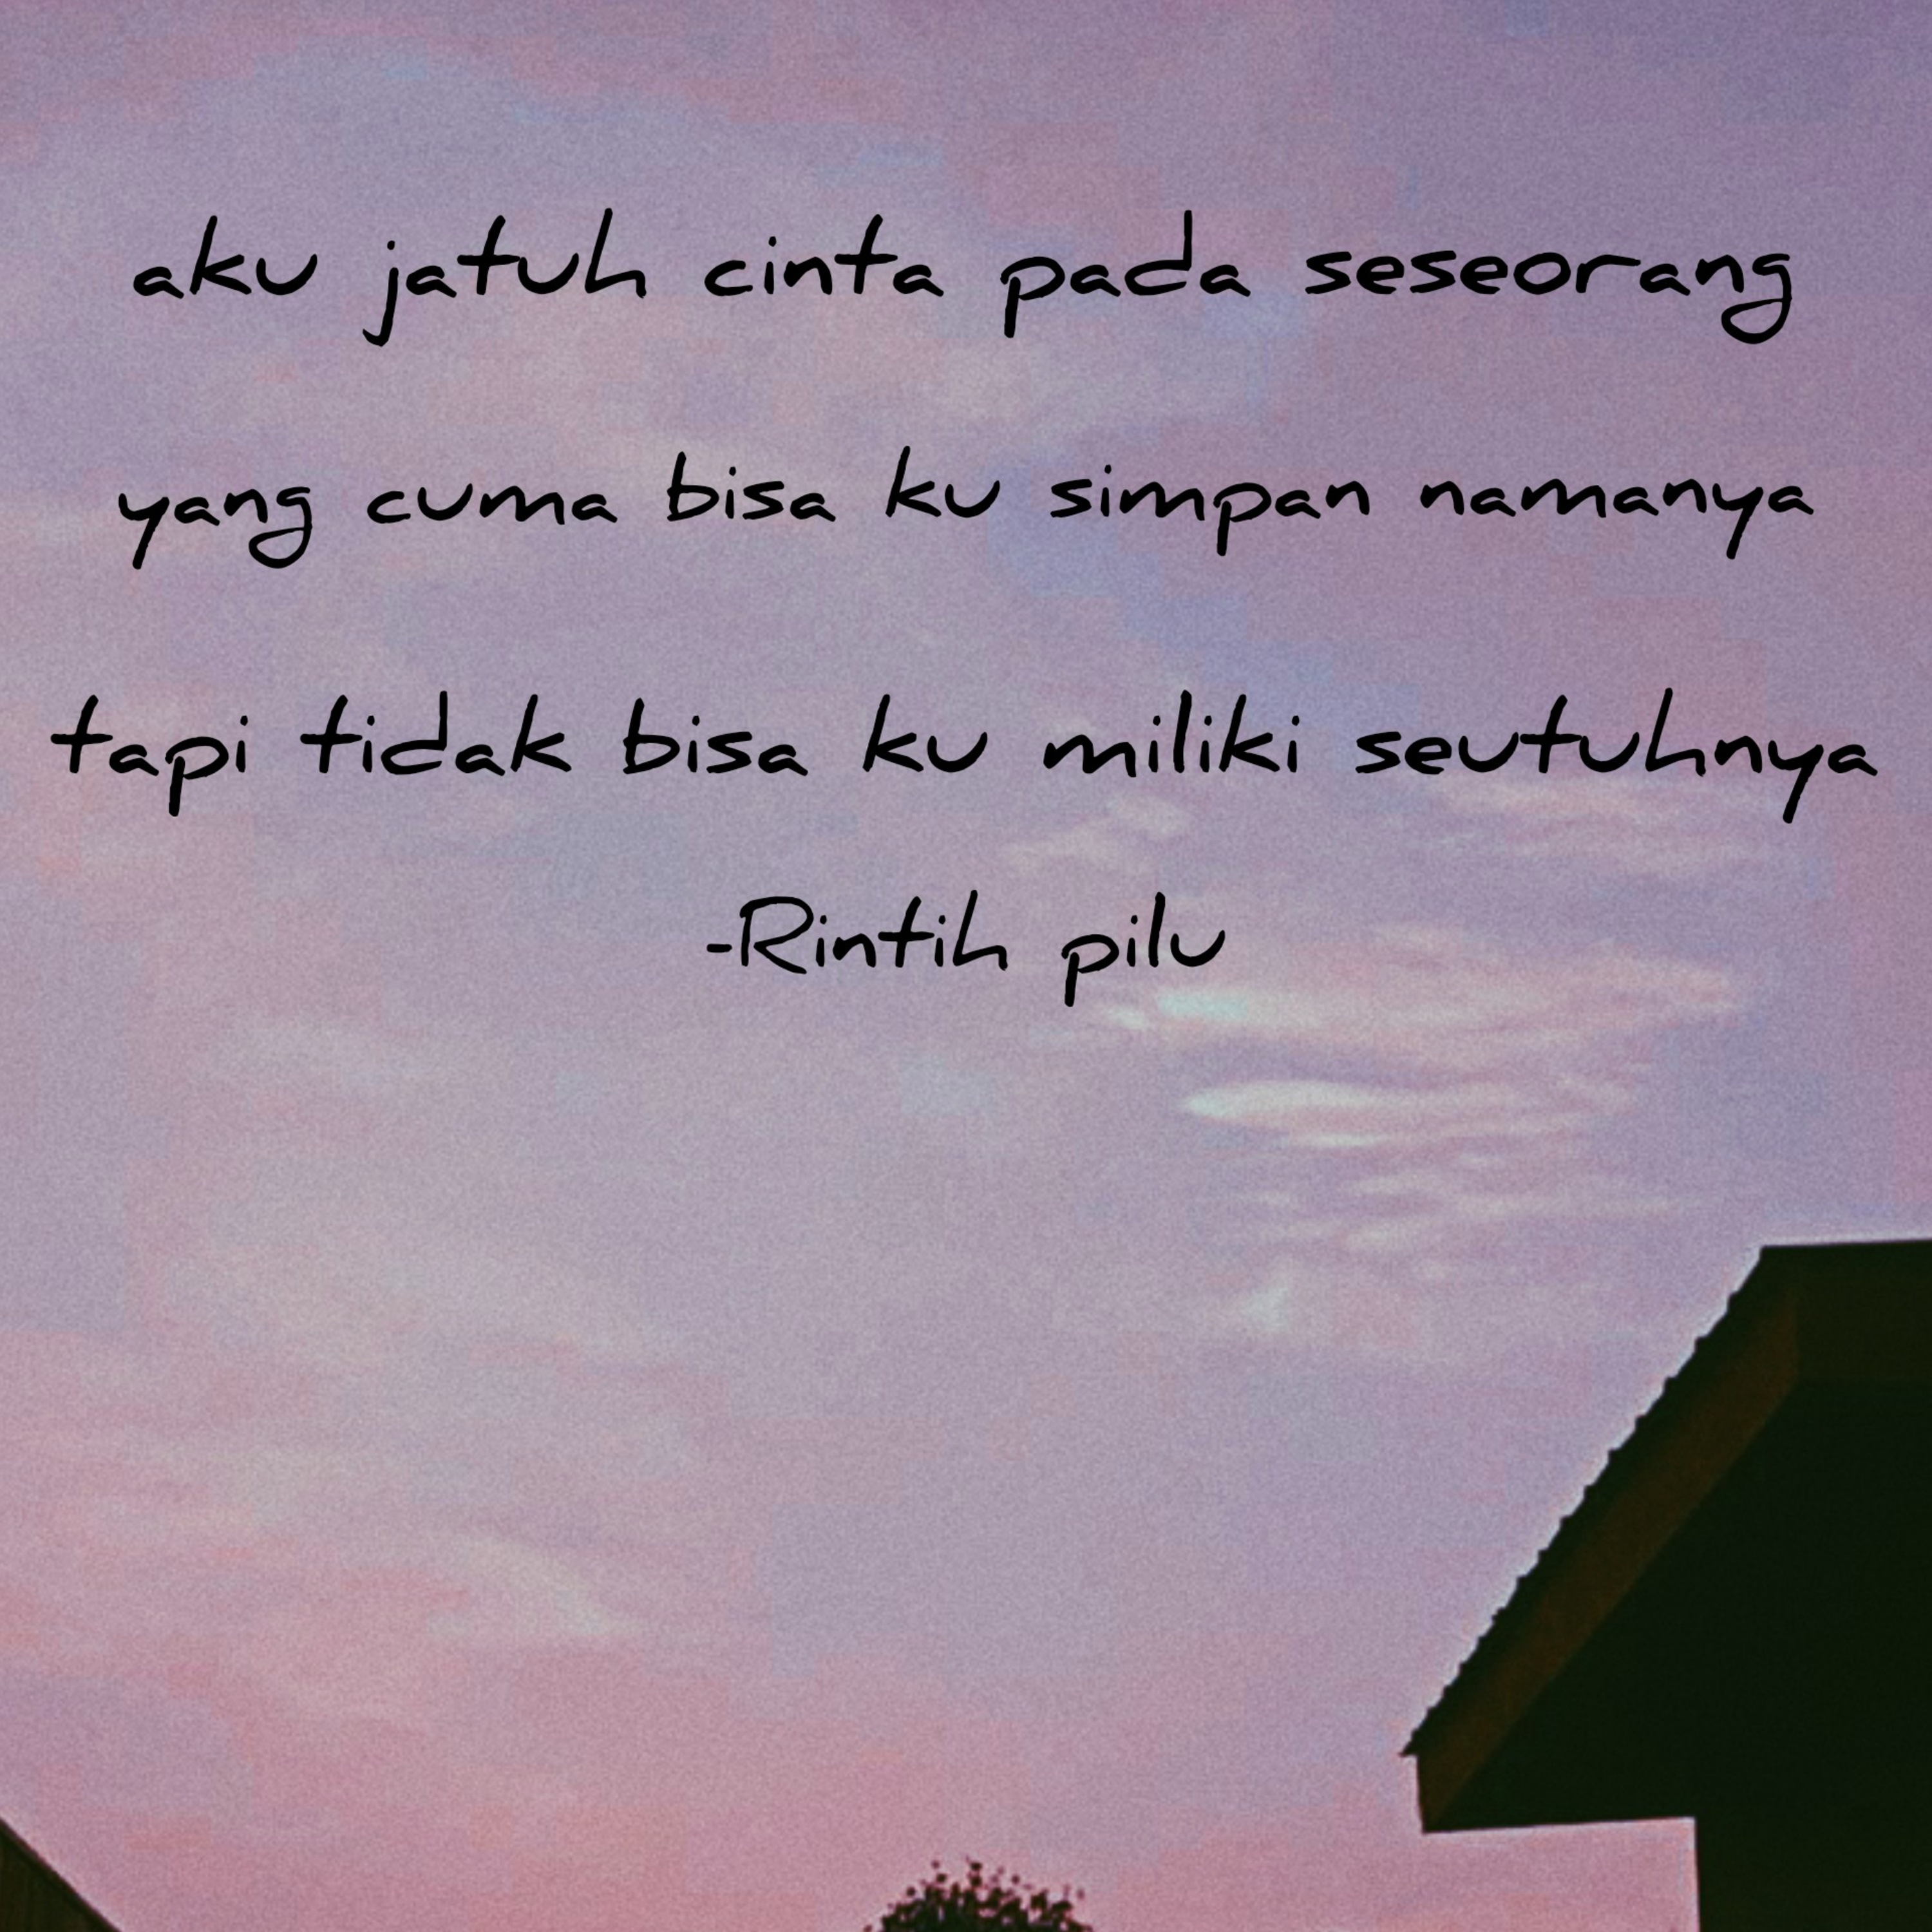 aku jatuh cinta pada seseorang
yang cuma bisa ku simpan namanya
tapi tidak bisa ku miliki seutuhnya
-Rintih pilu